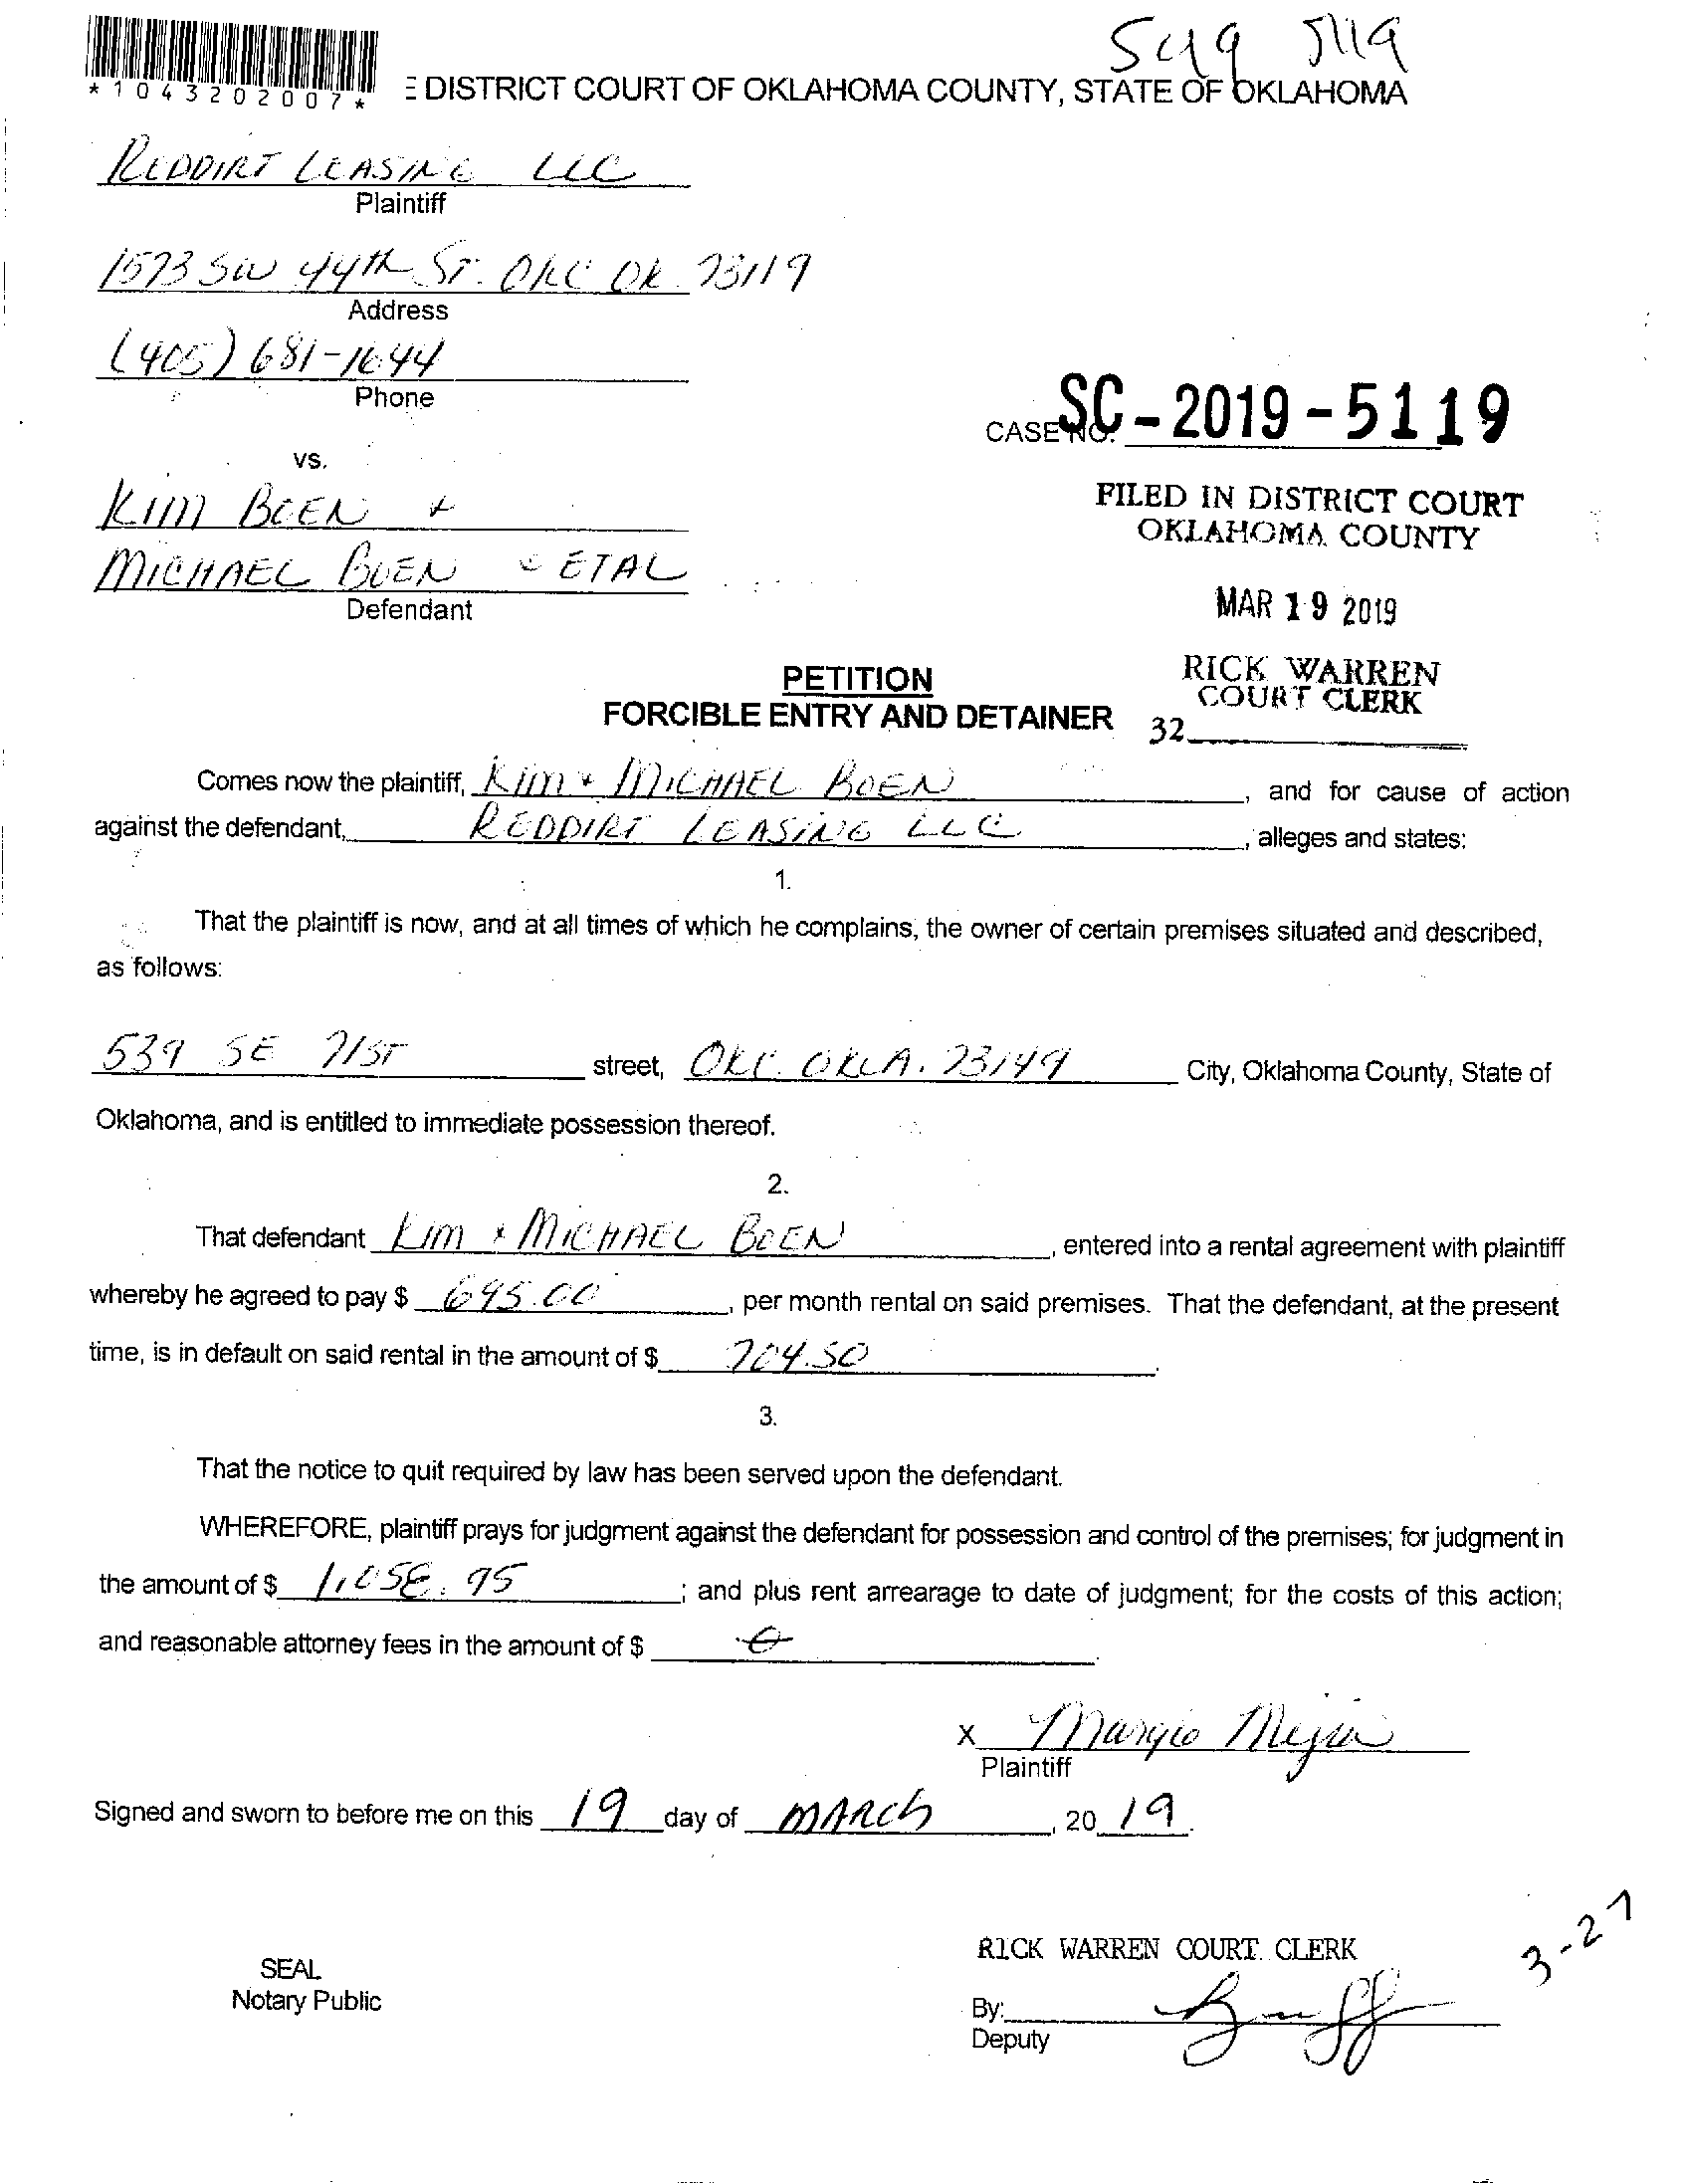 5119
*1043202007*
E DISTRICT COURT OF OKLAHOMA COUNTY, STATE OF OKLAHOMA
REDDIRT LEASING LLC
Plaintiff
1573 SW 44th ST. OKC OK 73119
Address
(405) 681-1644
Phone
CASE NO. SC-2019-5119
vs.
KIM BOEN &
FILED IN DISTRICT COURT
OKLAHOMA COUNTY
MICHAEL BOEN & ETAL
Defendant
MAR 19 2019
RICK WARREN
COURT CLERK
32
PETITION
FORCIBLE ENTRY AND DETAINER
Comes now the plaintiff, KIM & MICHAEL BOEN, and for cause of action
against the defendant, REDDIRT LEASING LLC, alleges and states:
1.
That the plaintiff is now, and at all times of which he complains, the owner of certain premises situated and described,
as follows:
539 SE 71ST street, OKC. OKLA. 73149 City, Oklahoma County, State of
Oklahoma, and is entitled to immediate possession thereof.
2.
That defendant KIM & MICHAEL BOEN, entered into a rental agreement with plaintiff
whereby he agreed to pay $ 695.00, per month rental on said premises. That the defendant, at the present
time, is in default on said rental in the amount of $ 704.50.
3.
That the notice to quit required by law has been served upon the defendant.
WHEREFORE, plaintiff prays for judgment against the defendant for possession and control of the premises; for judgment in
the amount of $ ; and plus rent arrearage to date of judgment; for the costs of this action;
and reasonable attorney fees in the amount of $ 0.
X Margie Mejia
Plaintiff
Signed and sworn to before me on this 19 day of MARCH, 20 19.
3-27
RICK WARREN COURT CLERK
SEAL
Notary Public
By:
Deputy